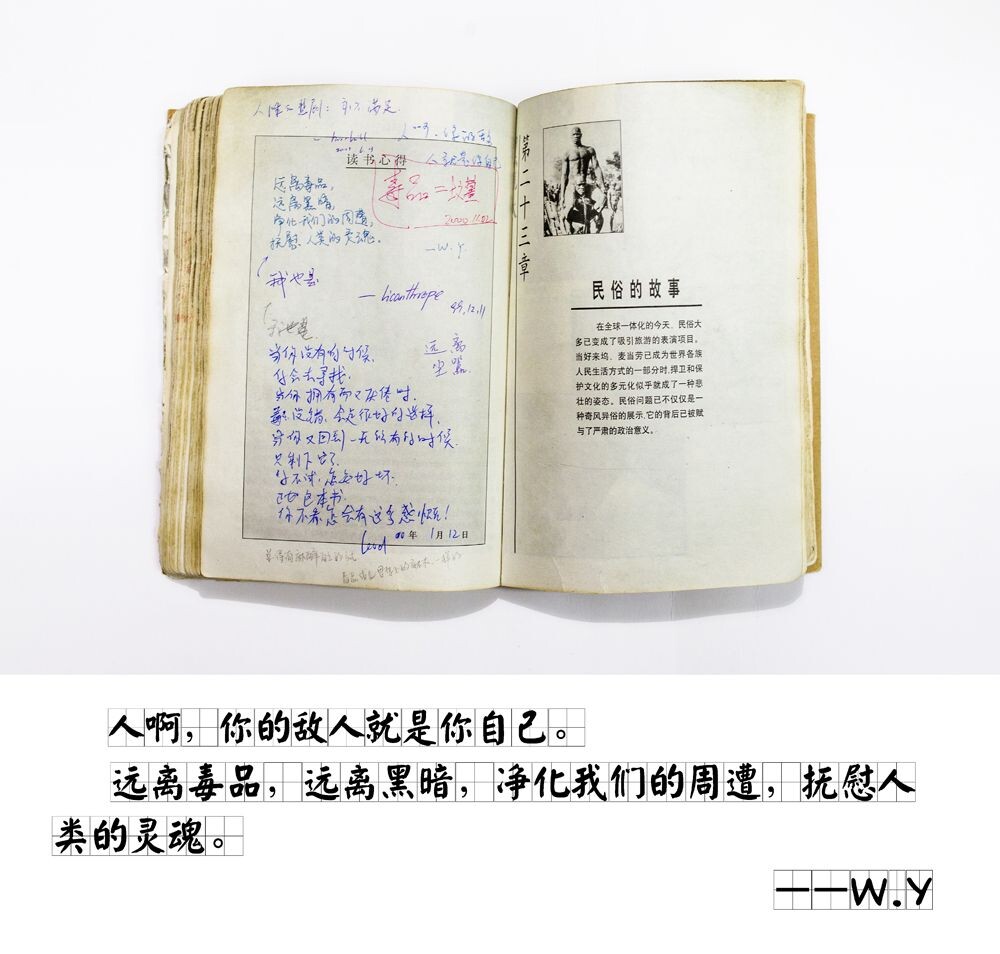 人性的悲剧：永不满足
人啊，你的敌
人就是你自己
读书心得
远离毒品，
远离黑暗，
净化我们的周遭，
抚慰人类的灵魂。
—W.Y.
毒品=坟墓
2000.11.02
我也是
—Licanthrope
99.12.11
远离
尘嚣
当你没有的时候，
你会去寻找，
当你拥有而又厌倦时，
当你又回到一无所有的时候，
只剩下空了，
你不看怎会有这多感慨！
00年 1月12日
第二十三章
民俗的故事
在全球一体化的今天，民俗大
多已变成了吸引旅游的表演项目。
当好来坞、麦当劳已成为世界各族
人民生活方式的一部分时，捍卫和保
护文化的多元化似乎就成了一种悲
壮的姿态。民俗问题已不仅仅是一
种奇风异俗的展示，它的背后已被赋
与了严肃的政治意义。
人啊，你的敌人就是你自己。
远离毒品，远离黑暗，净化我们的周遭，抚慰人
类的灵魂。
——W.Y